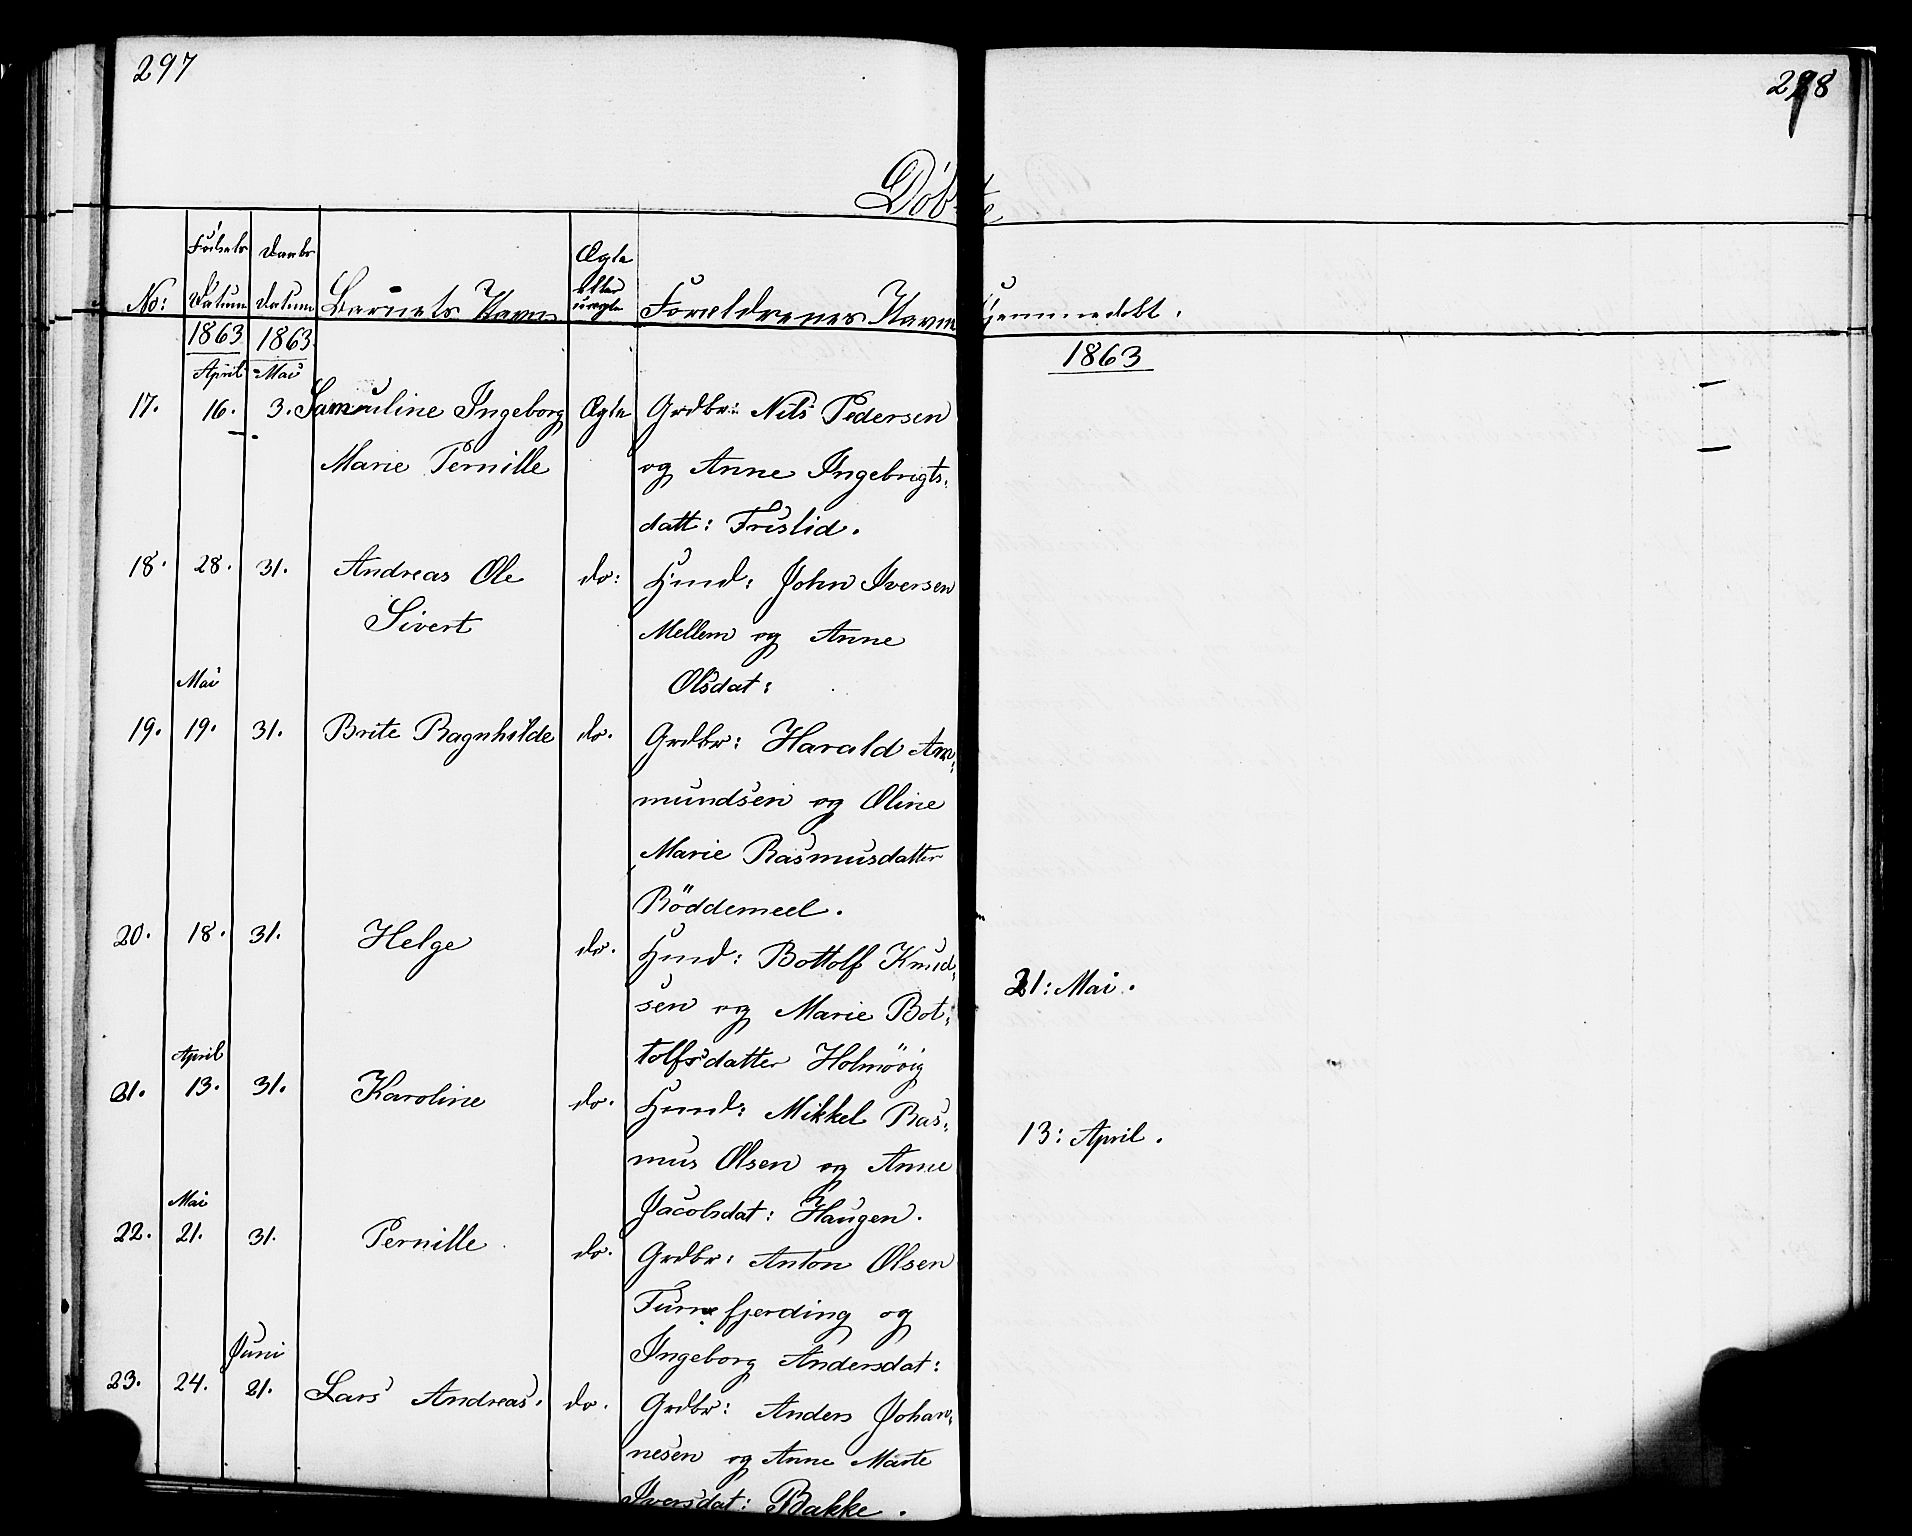 297
298
Døbte
No:
Fødsels Datum
Daabs Datum
Barnets Navn
Ægte eller uægte
Forældrenes Navn
Hjemmedøbt.
1863 1863
1863
April Mai
17. 16. 3. Samuline Ingeborg Ægte Grdbr: Nils Pedersen
Marie Pernille og Anne Ingebrigts-
datt: Frislid.
18. 28. 31. Andreas Ole do: Hmd: John Iversen
Sivert Mellem og Anne
Mai Olsdat:
19. 19. 31. Brite Ragnhilde do. Grdbr: Harald Am-
mundsen og Oline
Marie Rasmusdatter
Röddemeel.
20. 18. 31. Helge do. Hmd: Bottolf Knud-
21: Mai.
sen og Marie Bot-
April tolfsdatter Holmövig
21. 13. 31. Karoline do. Hmd: Mikkel Ras-
13: April.
mus Olsen og Anne
Mai Jacobsdat: Haugen.
22. 21. 31. Pernille do. Grdbr: Anton Olsen
fjerding og
Juni Ingeborg Andersdat:
23. 24. 21. Lars Andreas. do. Grdbr: Anders Johan-
nesen og Anne Marte
Iversdat: Bakke.